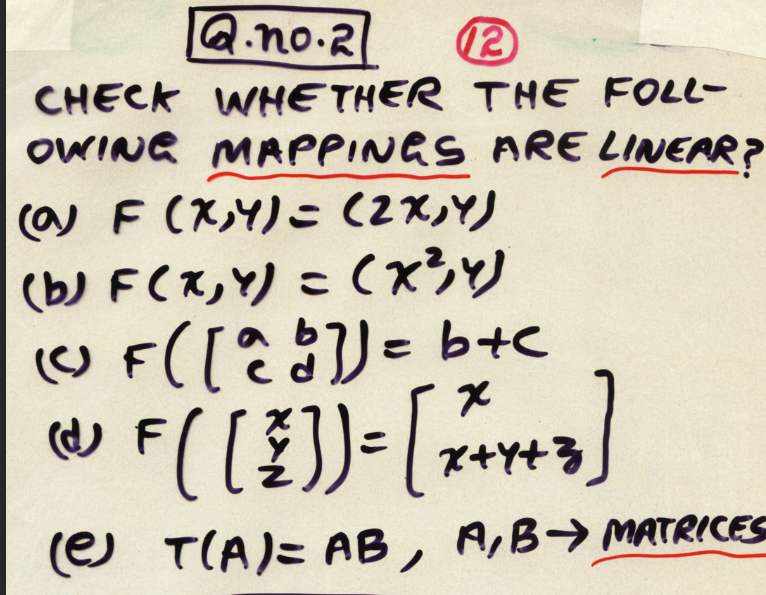 Q.no.2 12
CHECK WHETHER THE FOLL-
OWING MAPPINGS ARE LINEAR?
(a) F (x,y) = (2x,y)
(b) F(x,y) = (x²,y)
(c) F([a b
c d]) = b+c
(d) F([x
y
z]) = [x
x+y+z]
(e) T(A) = AB, A,B → MATRICES